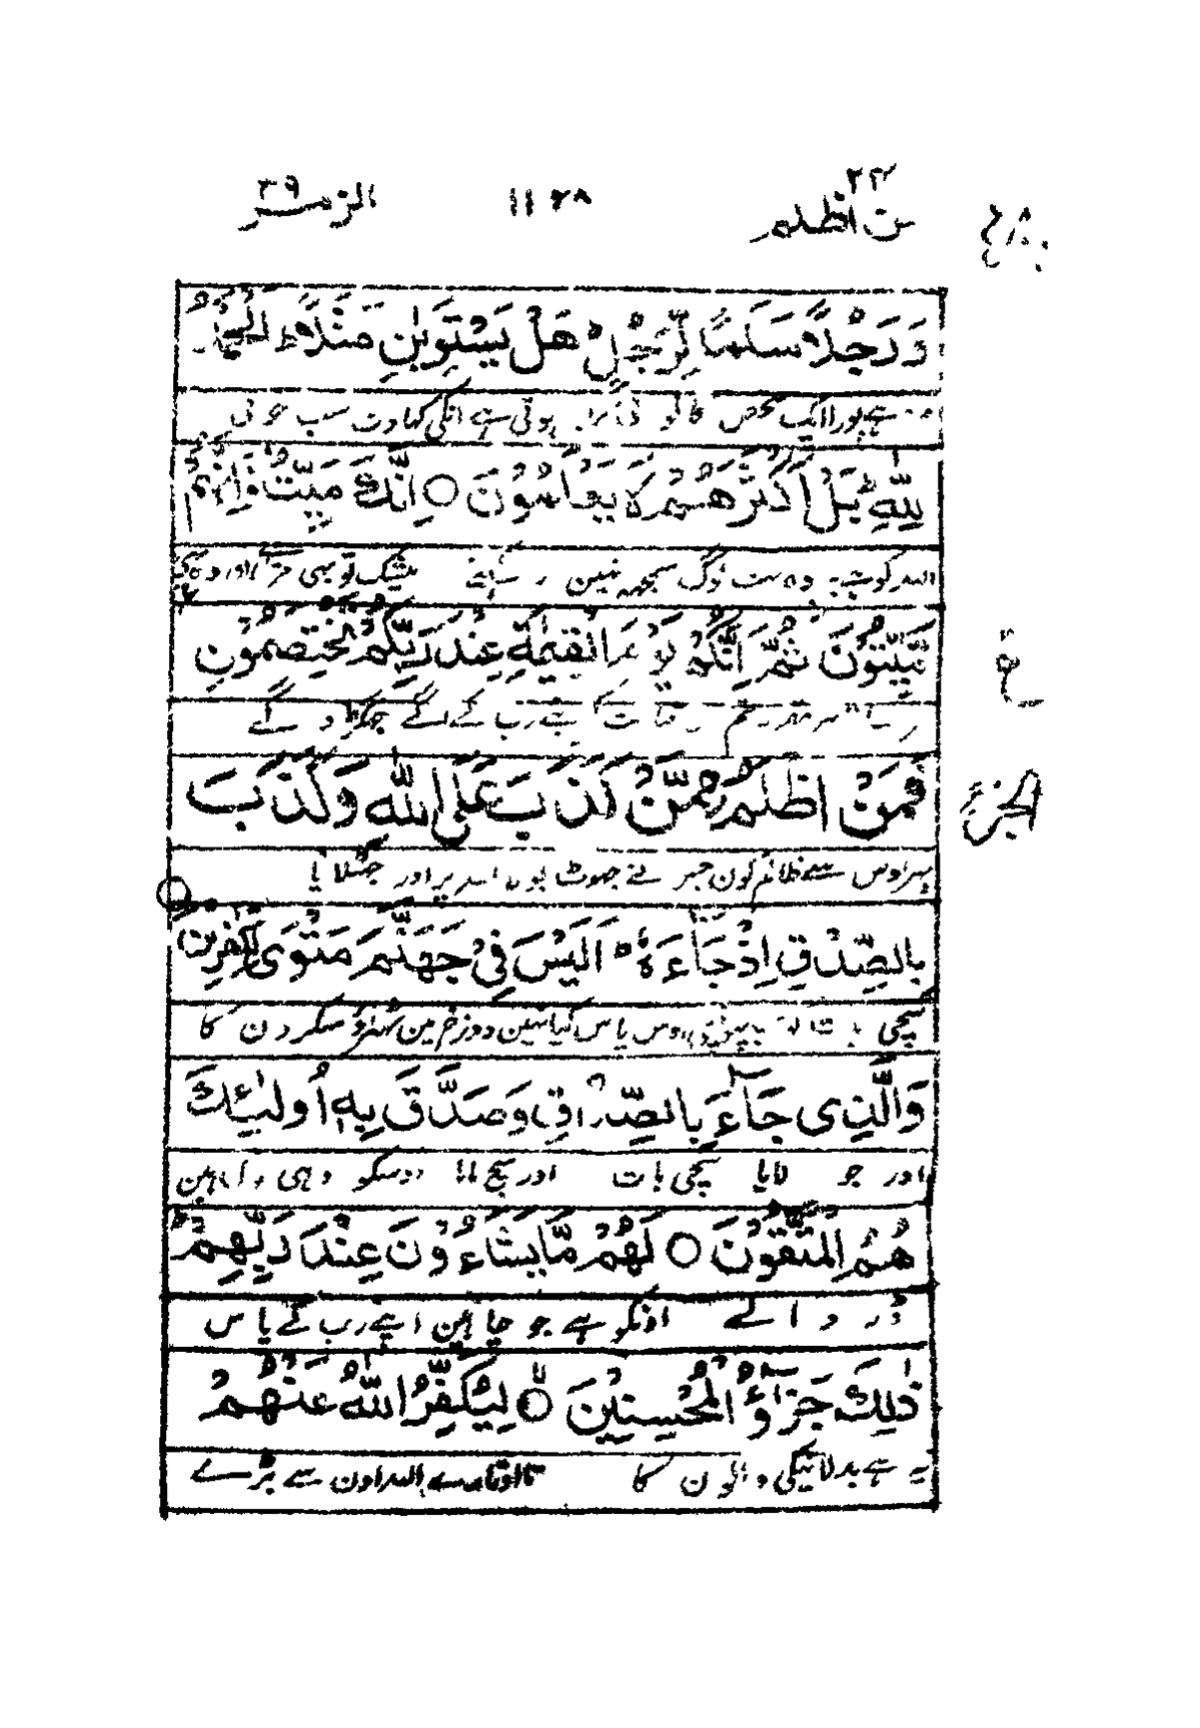 فمن اظلم ٢٤ ١١٢٨ الزمر ٣٩
وَرَجُلًا سَلَمًا لِّرَجُلٍ ؕ هَلْ يَسْتَوِيٰنِ مَثَلًا ؕ اَلْحَمْدُ
ہے پورا ایک شخص کا کوئی برابر ہوتی ہے انکی کہاوت سب خوبی
لِلّٰهِ ؕ بَلْ اَكْثَرُهُمْ لَا يَعْلَمُوْنَ ○ اِنَّكَ مَيِّتٌ وَّاِنَّهُمْ
اللہ کو ہے پر وہ بہت لوگ سمجھ نہین رکھتے بیشک تو بھی مرتا اور وہ بھی
مَّيِّتُوْنَ ثُمَّ اِنَّكُمْ يَوْمَ الْقِيٰمَةِ عِنْدَ رَبِّكُمْ تَخْتَصِمُوْنَ
تم اپنے رب کے آگے جھگڑو گے
ع
فَمَنْ اَظْلَمُ مِمَّنْ كَذَبَ عَلَى اللّٰهِ وَكَذَّبَ
الجزء
پھر اوس سے ظالم کون جس نے جھوٹ بولا اللہ پر اور جھٹلایا
بِالصِّدْقِ اِذْ جَآءَهٗ ؕ اَلَيْسَ فِيْ جَهَنَّمَ مَثْوًى لِّلْكٰفِرِيْنَ
سچی بات کو جب پہونچی اوس پاس کیا نہین دوزخ مین ٹھہراؤ منکرون کا
وَالَّذِيْ جَآءَ بِالصِّدْقِ وَصَدَّقَ بِهٖٓ اُولٰٓئِكَ
اور جو لایا سچی بات اور سچ مانا اوسکو وہی لوگ ہین
هُمُ الْمُتَّقُوْنَ ○ لَهُمْ مَّا يَشَآءُوْنَ عِنْدَ رَبِّهِمْ ؕ
ڈر والے اونکو ہے جو چاہین اپنے رب کے پاس
ذٰلِكَ جَزٰٓؤُا الْمُحْسِنِيْنَ ○ لِيُكَفِّرَ اللّٰهُ عَنْهُمْ
یہ ہے بدلا نیکی والون کا تا اوتارے اللہ اون سے بڑے